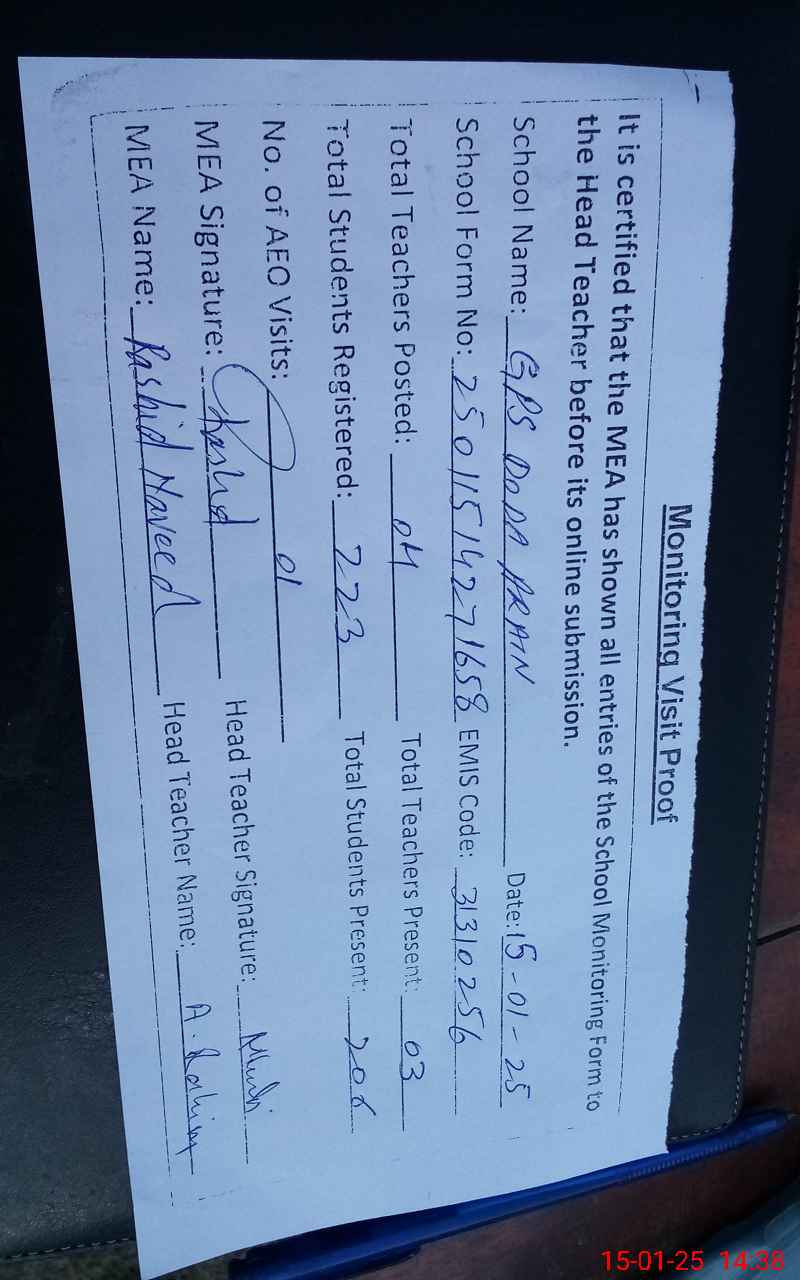 Monitoring Visit Proof
It is certified that the MEA has shown all entries of the School Monitoring Form to
the Head Teacher before its online submission.
School Name: GPS DODA ARAIN Date: 15-01-25
School Form No: 25011514271658 EMIS Code: 31310256
Total Teachers Posted: 04 Total Teachers Present: 03
Total Students Registered: 223 Total Students Present: 206
No. of AEO Visits: 01
MEA Signature: Rashid Head Teacher Signature:
MEA Name: Rashid Naveed Head Teacher Name: A. Rahim
15-01-25 14:38